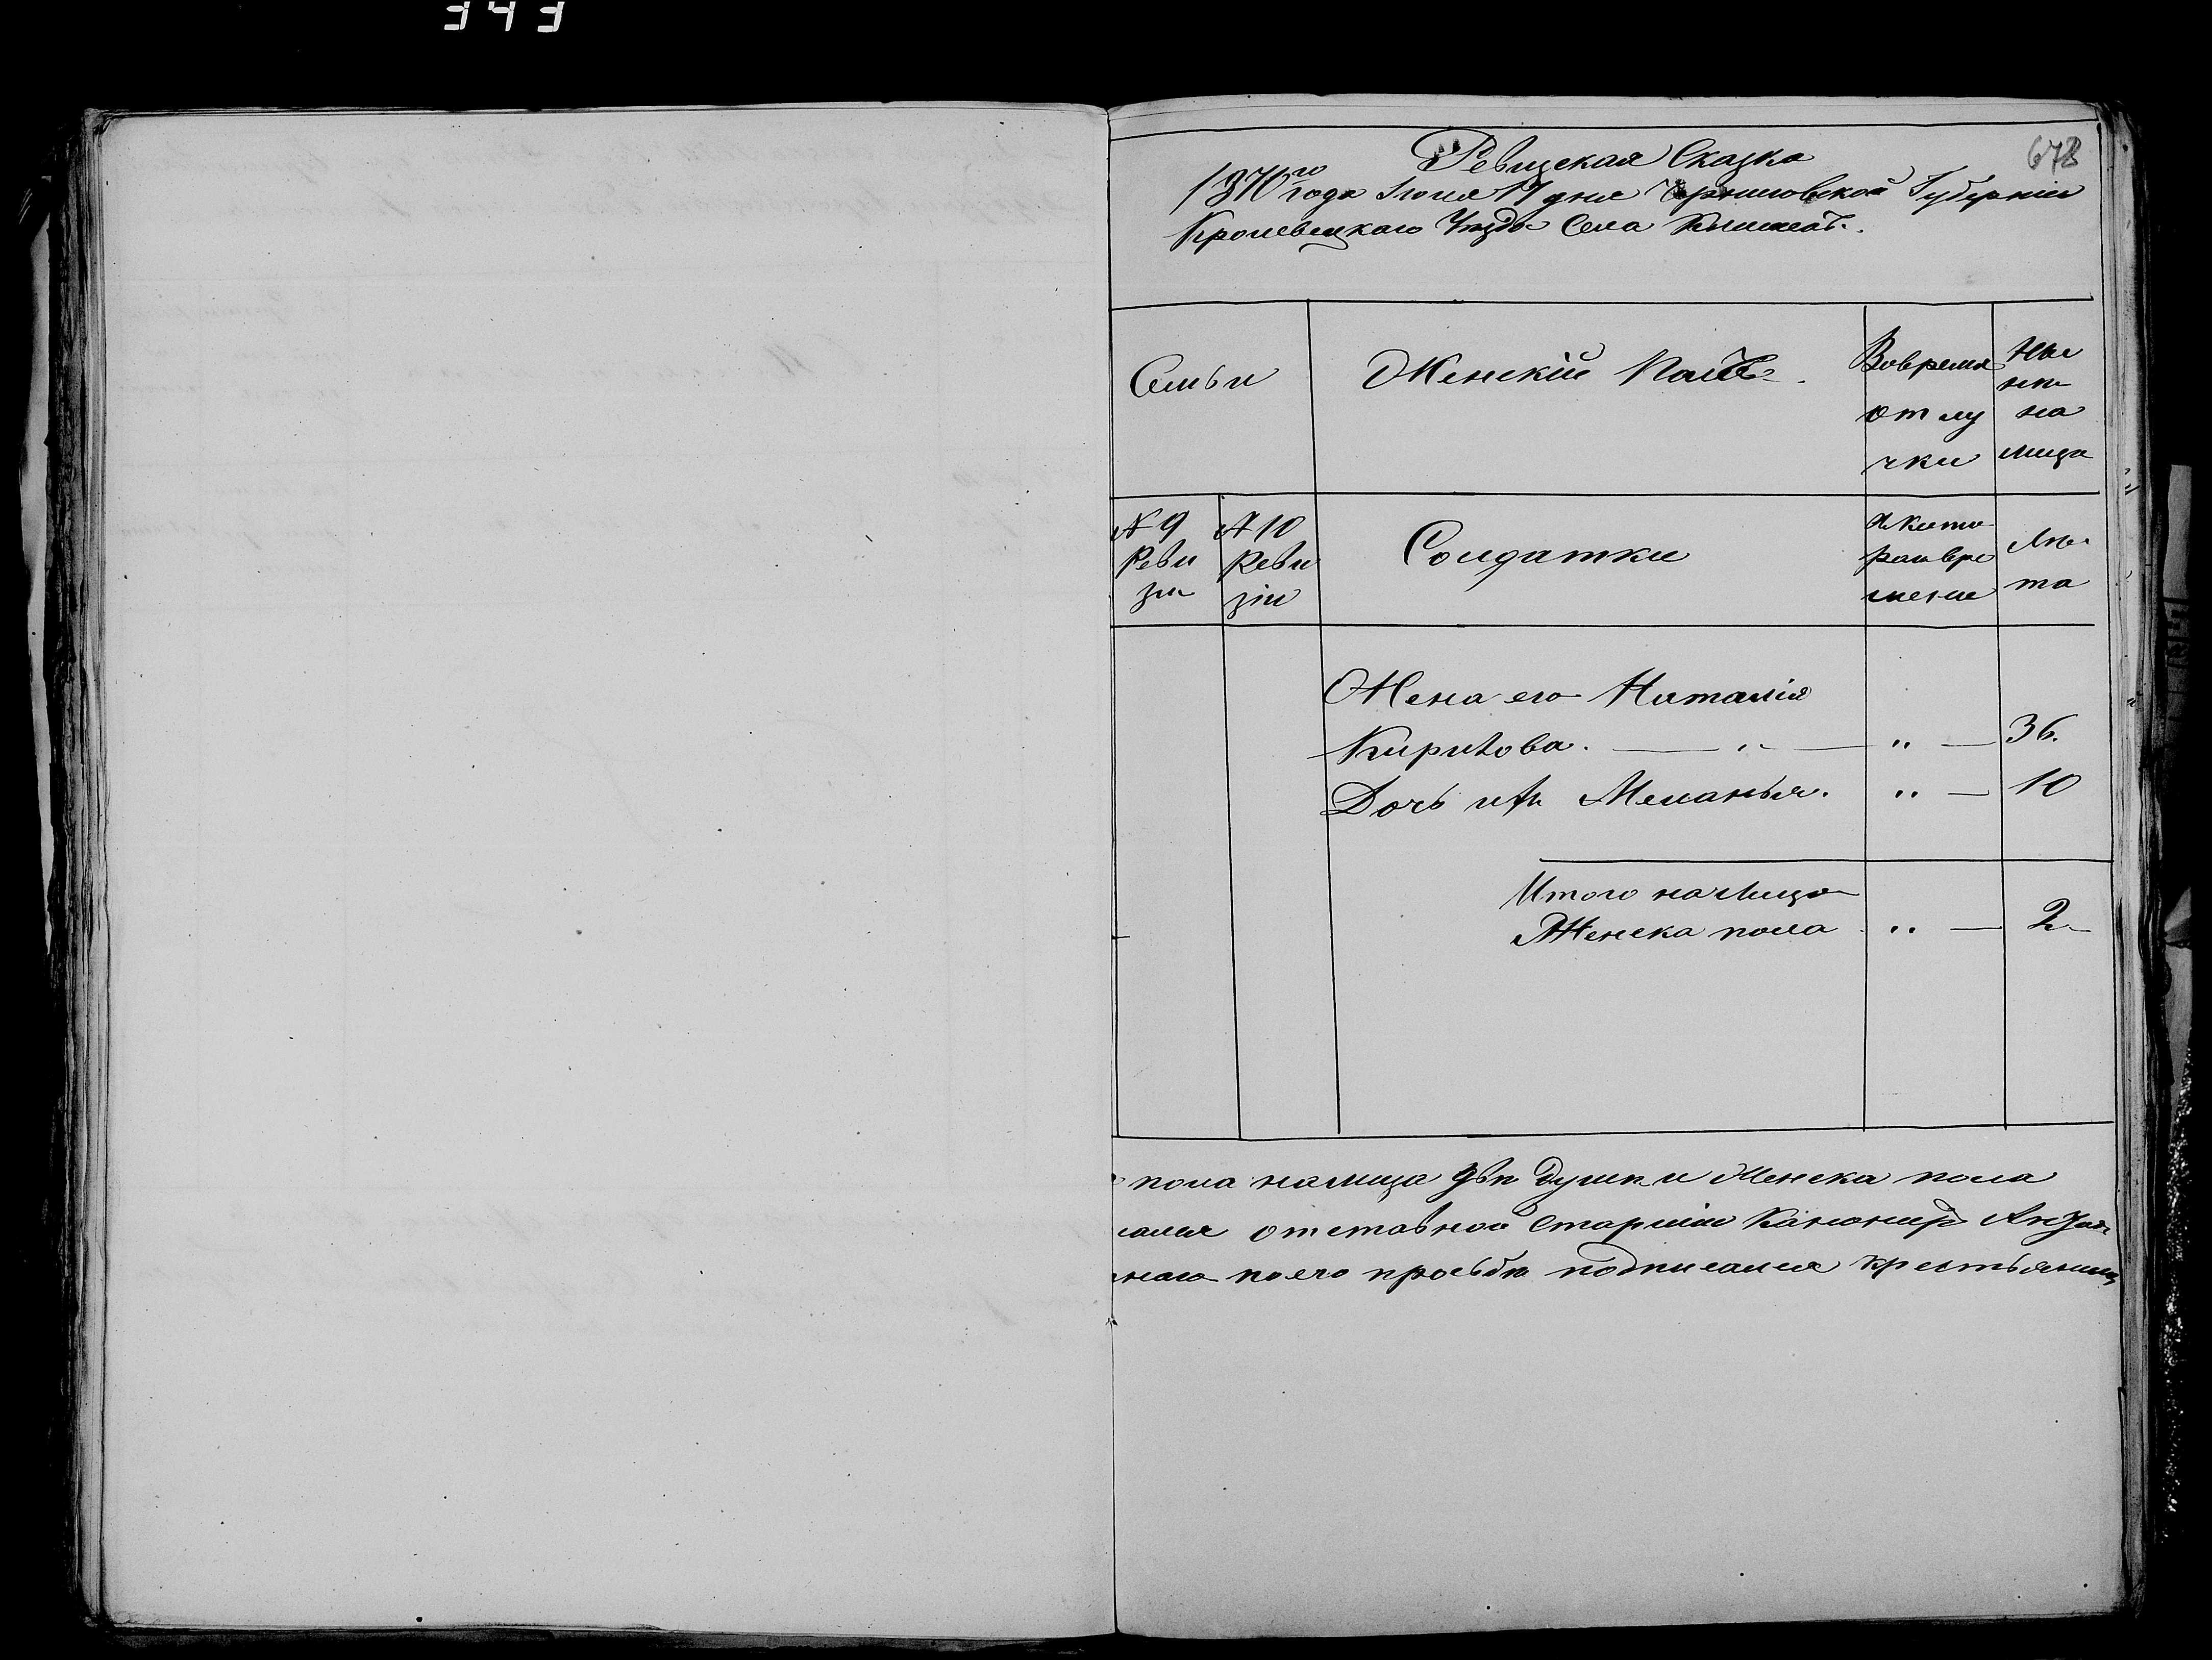 343
678
Ревизская Сказка
1870го года Июня 17 дня Черниговской Губерніи
Кролевецкаго Уезда Села
Семьи
Женскій Полъ
Вовремя
отлу
чки
Ны
не
на
лицо
№ 9
Реви
зіи
№ 10
Реви
зіи
Солдатки
ското
раговре
мени
Лѣ
та
Жена его Наталія
Кирилова. — „ — „ — 36.
Дочь ихъ Меланья. „ — 10
Итого налицо
Женска пола „ — 2
пола налицо двѣ души и Женска пола
отставной старшій Канониръ
по его просьбѣ подписался крестьянинъ